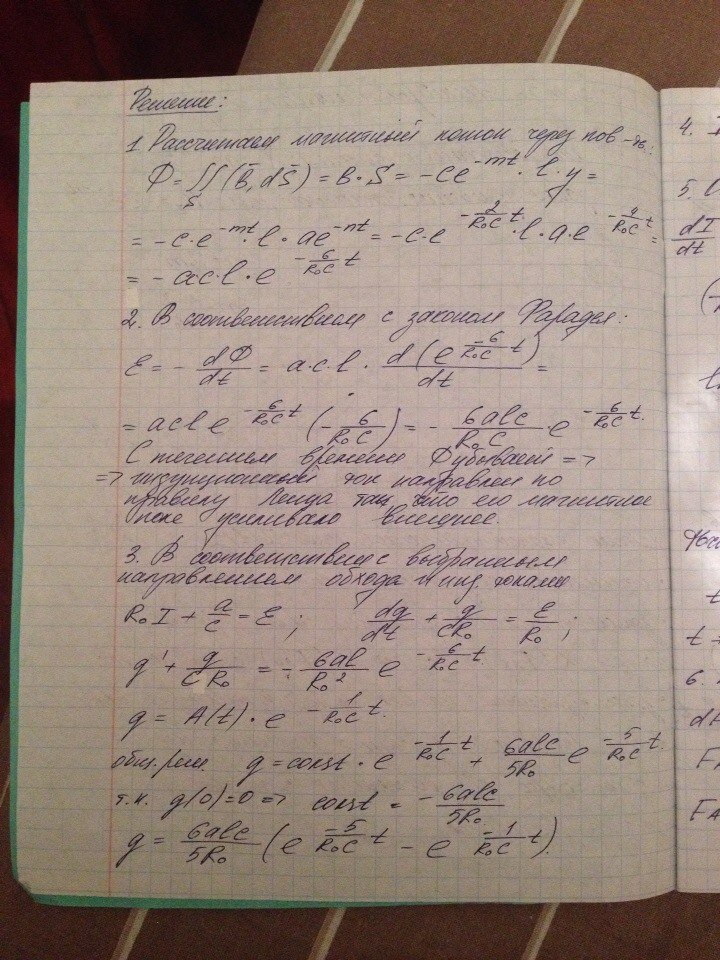 Решение:
1. Рассчитаем магнитный поток через пов-ть:
Ф = ∬_S (B̄, dS̄) = B · S = -ce^{-mt} · l · y =
= -c · e^{-mt} · l · ae^{-nt} = -c · e^{-\frac{2}{R₀C}t} · l · a · e^{-\frac{4}{R₀C}t} =
= - ac · l · e^{-\frac{6}{R₀C}t}
2. В соответствием с законом Фарадея:
ε = - \frac{dФ}{dt} = a · c · l · \frac{d(e^{\frac{-6}{R₀C}t})}{dt} =
= acl e^{-\frac{6}{R₀C}t} (-\frac{6}{R₀C}) = - \frac{6alc}{R₀C} e^{-\frac{6}{R₀C}t}.
С течением времени Ф убывает =>
=> индукционный ток направлен по
правилу Ленца так, что его магнитное
поле усиливало внешнее.
3. В соответствии с выбранным
направлением обхода и инд. токами
R₀I + \frac{q}{c} = ε ; \frac{dq}{dt} + \frac{q}{CR₀} = \frac{ε}{R₀} ;
q' + \frac{q}{CR₀} = - \frac{6al}{R₀²} e^{-\frac{6}{R₀C}t}
q = A(t) · e^{-\frac{1}{R₀C}t}.
общ. реш. q = const · e^{-\frac{1}{R₀C}t} + \frac{6alc}{5R₀} e^{-\frac{5}{R₀C}t}.
т.к. q(0) = 0 => const = - \frac{6alc}{5R₀}
q = \frac{6alc}{5R₀} (e^{\frac{-5}{R₀C}t} - e^{\frac{-1}{R₀C}t}).
4.
5.
\frac{dI}{dt}
(
t
t +
6.
dA
F_A
F_A